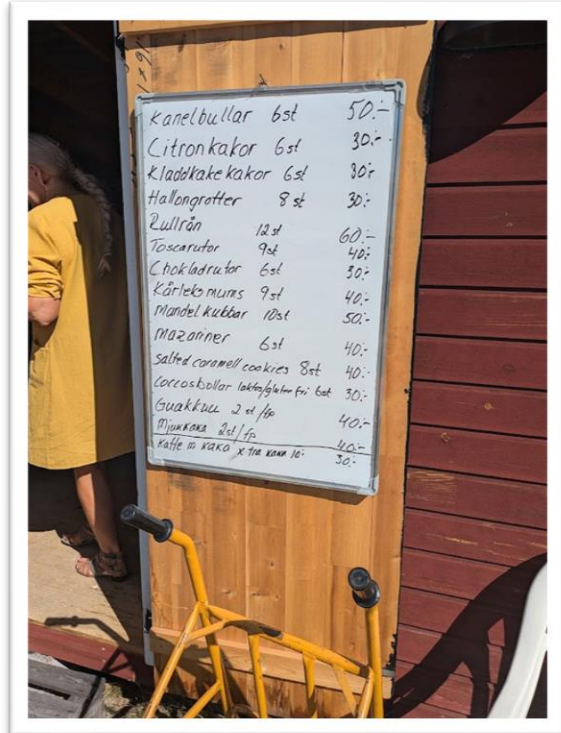 Kanelbullar 6st 50:-
Citronkakor 6st 30:-
Kladdkakekakor 6st 30:-
Hallongrotter 8st 30:-
Rullrån 12st 60:-
Toscarutor 9st 40:-
Chokladrutor 6st 30:-
Kärleksmums 9st 40:-
Mandelkubbar 10st 50:-
Mazariner 6st 40:-
Salted caramell cookies 8st 40:-
Coccosbollar laktos/gluten fri 6st 30:-
2st/fp 40:-
Mjukkaka 2st/fp 40:-
Kaffe m kaka xtra kaka 10:- 30:-